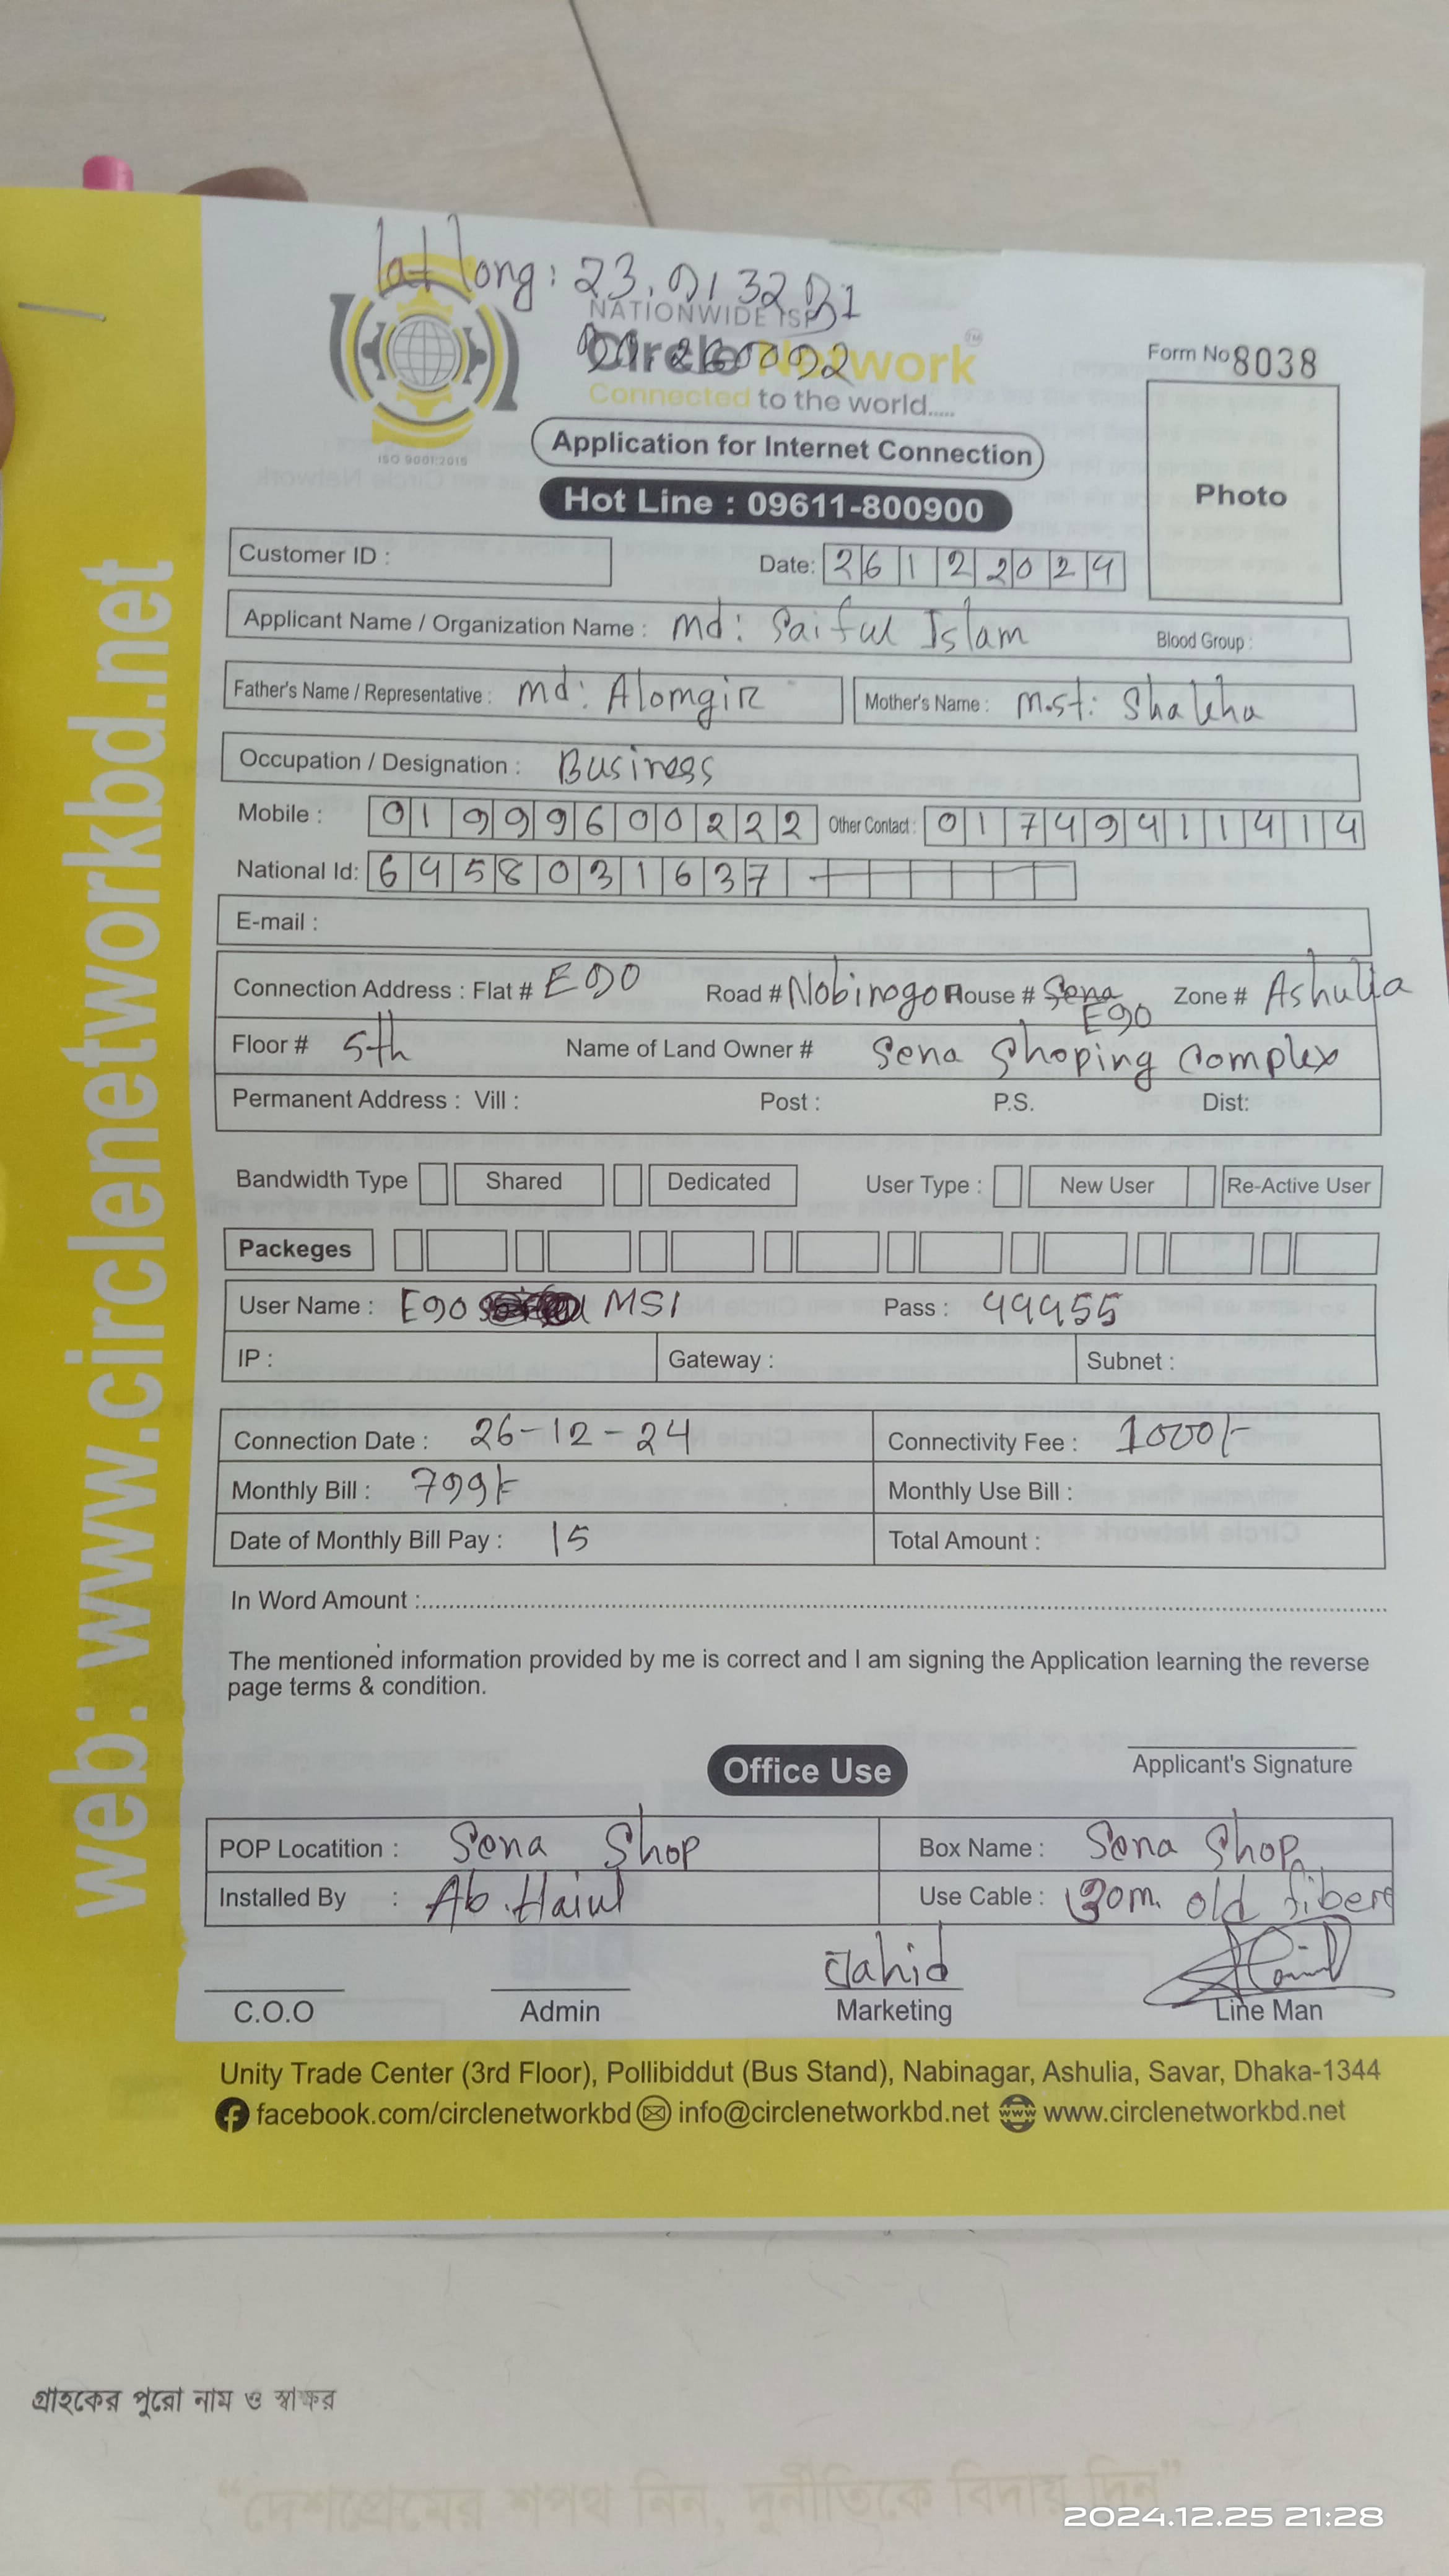 lat long: 23.913291
90.260092
NATIONWIDE ISP
Circle Network TM
Connected to the world.....
ISO 9001:2015
Form No 8038
Application for Internet Connection
Photo
Hot Line : 09611-800900
Customer ID :
Date: 26122024
Applicant Name / Organization Name : md: Saiful Islam Blood Group :
Father's Name / Representative : md: Alomgir Mother's Name : M.st: Shakha
Occupation / Designation : Business
Mobile : 01999600222 Other Contact : 01749411414
National Id: 6458031637
E-mail :
Connection Address : Flat # E90 Road # Nobinogor House # Sena E90 Zone # Ashulia
Floor # 5th Name of Land Owner # Sena Shoping Complex
Permanent Address : Vill : Post : P.S. Dist:
Bandwidth Type Shared Dedicated User Type : New User Re-Active User
Packeges
User Name : E90 MSI Pass : 49955
IP : Gateway : Subnet :
Connection Date : 26-12-24 Connectivity Fee : 1000/-
Monthly Bill : 799/- Monthly Use Bill :
Date of Monthly Bill Pay : 15 Total Amount :
In Word Amount :
The mentioned information provided by me is correct and I am signing the Application learning the reverse
page terms & condition.
Applicant's Signature
Office Use
POP Locatition : Sena Shop Box Name : Sena Shop
Installed By : Ab. Haiul Use Cable : 30m. old fiber
Jahid
C.O.O Admin Marketing Line Man
Unity Trade Center (3rd Floor), Pollibiddut (Bus Stand), Nabinagar, Ashulia, Savar, Dhaka-1344
facebook.com/circlenetworkbd info@circlenetworkbd.net www www.circlenetworkbd.net
web: www.circlenetworkbd.net
গ্রাহকের পুরো নাম ও স্বাক্ষর
“দেশপ্রেমের শপথ নিন, দুর্নীতিকে বিদায় দিন”
2024.12.25 21:28